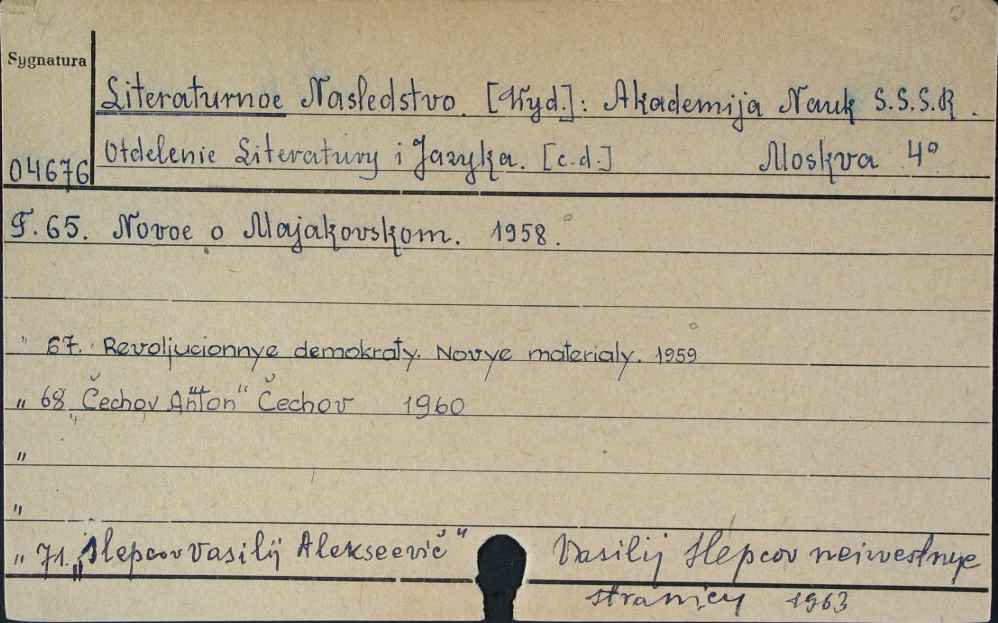 Sygnatura
Literaturnoe Nasledstvo. [Wyd.]: Akademija Nauk S.S.S.R.
04676 Otdelenie Literatury i Jazyka. [c.d.] Moskva 4°
T. 65. Novoe o Majakovskom. 1958.
" 67. Revoljucionnye demokraty. Novye materialy. 1959
" 68 „Čechov Anton" Čechov 1960
"
"
" 71. „Slepcov Vasilij Alekseevič" Vasilij Slepcov neizvestnye
stranicy 1963